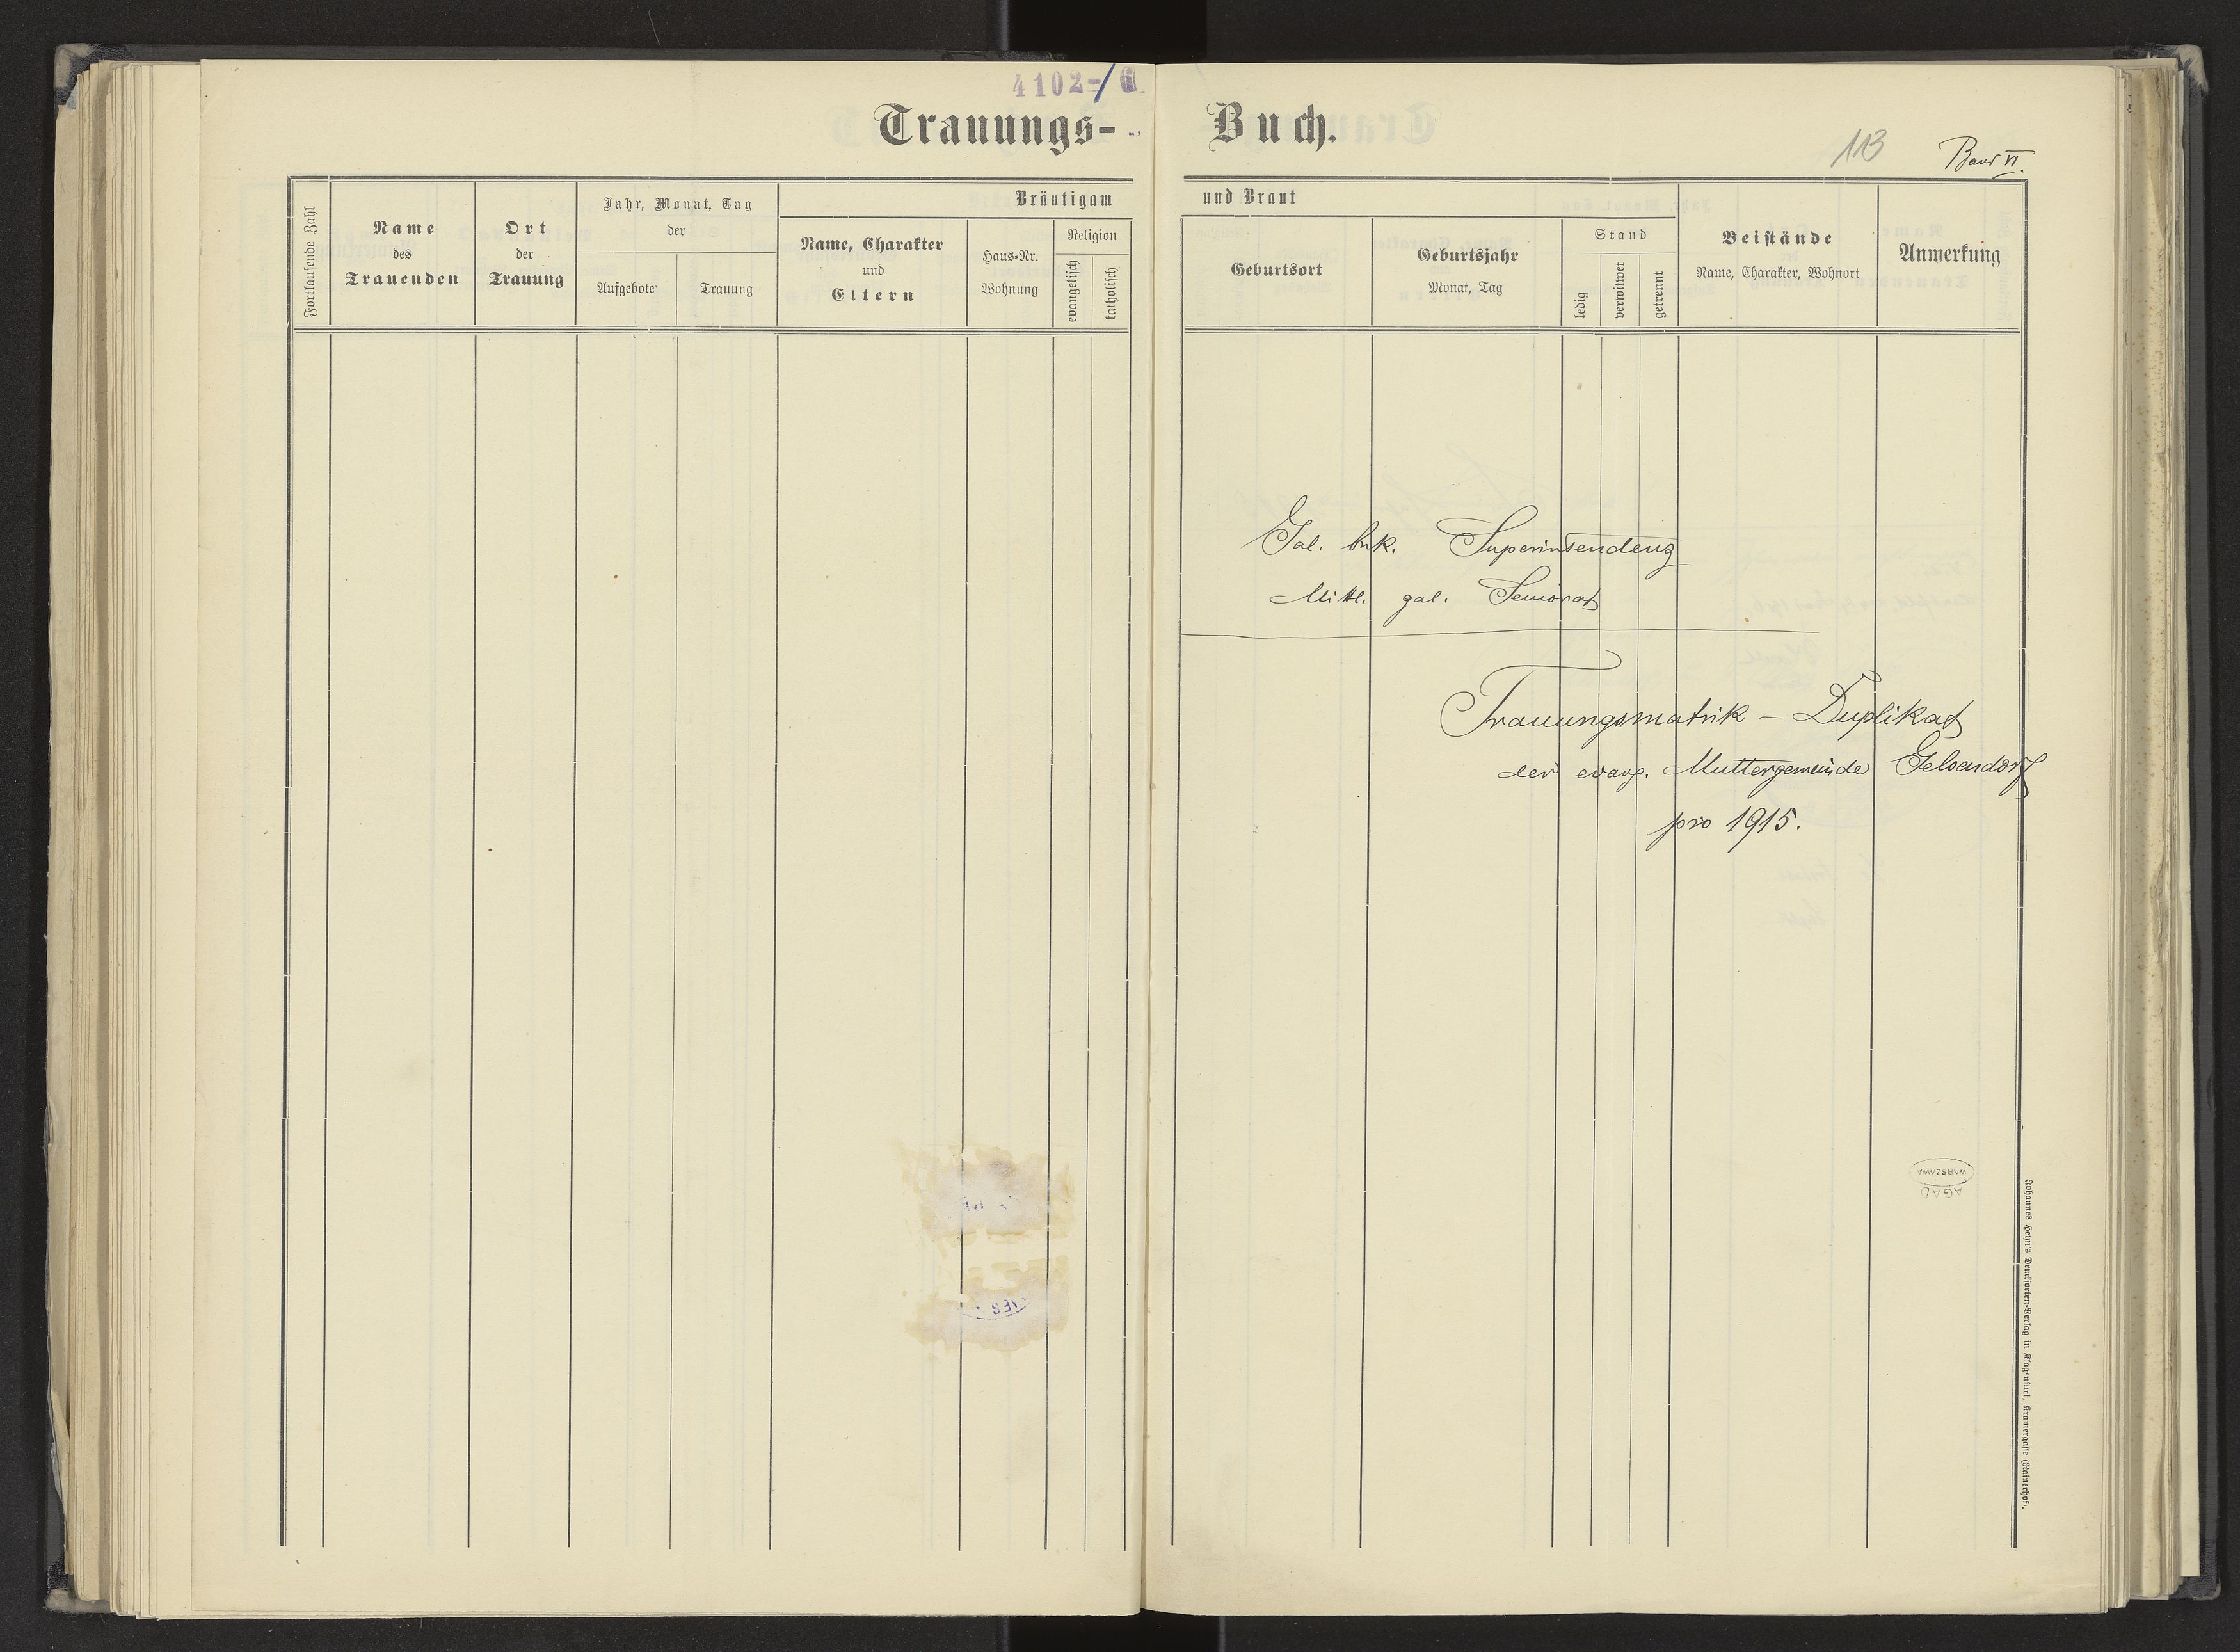 4102-/6
Trauungs- Buch.
113
Band VI.
Fortlaufende Zahl
Name
des
Trauenden
Ort
der
Trauung
Jahr, Monat, Tag
der
Aufgebote
Trauung
Bräutigam
Name, Charakter
und
Eltern
Haus-Nr.
Wohnung
Religion
evangelisch
katholisch
und Braut
Geburtsort
Geburtsjahr
Monat, Tag
Stand
ledig
verwitwet
getrennt
Beistände
Name, Charakter, Wohnort
Anmerkung
Gal. buk. Superintendenz
Mittl. gal. Seniorat
Trauungsmatrik – Duplikat
der evang. Muttergemeinde Gelsendorf
pro 1915.
AGAD
WARSZAWA
Johannes Heyn's Drucksorten-Verlag in Klagenfurt, Kramergasse (Rainerhof).